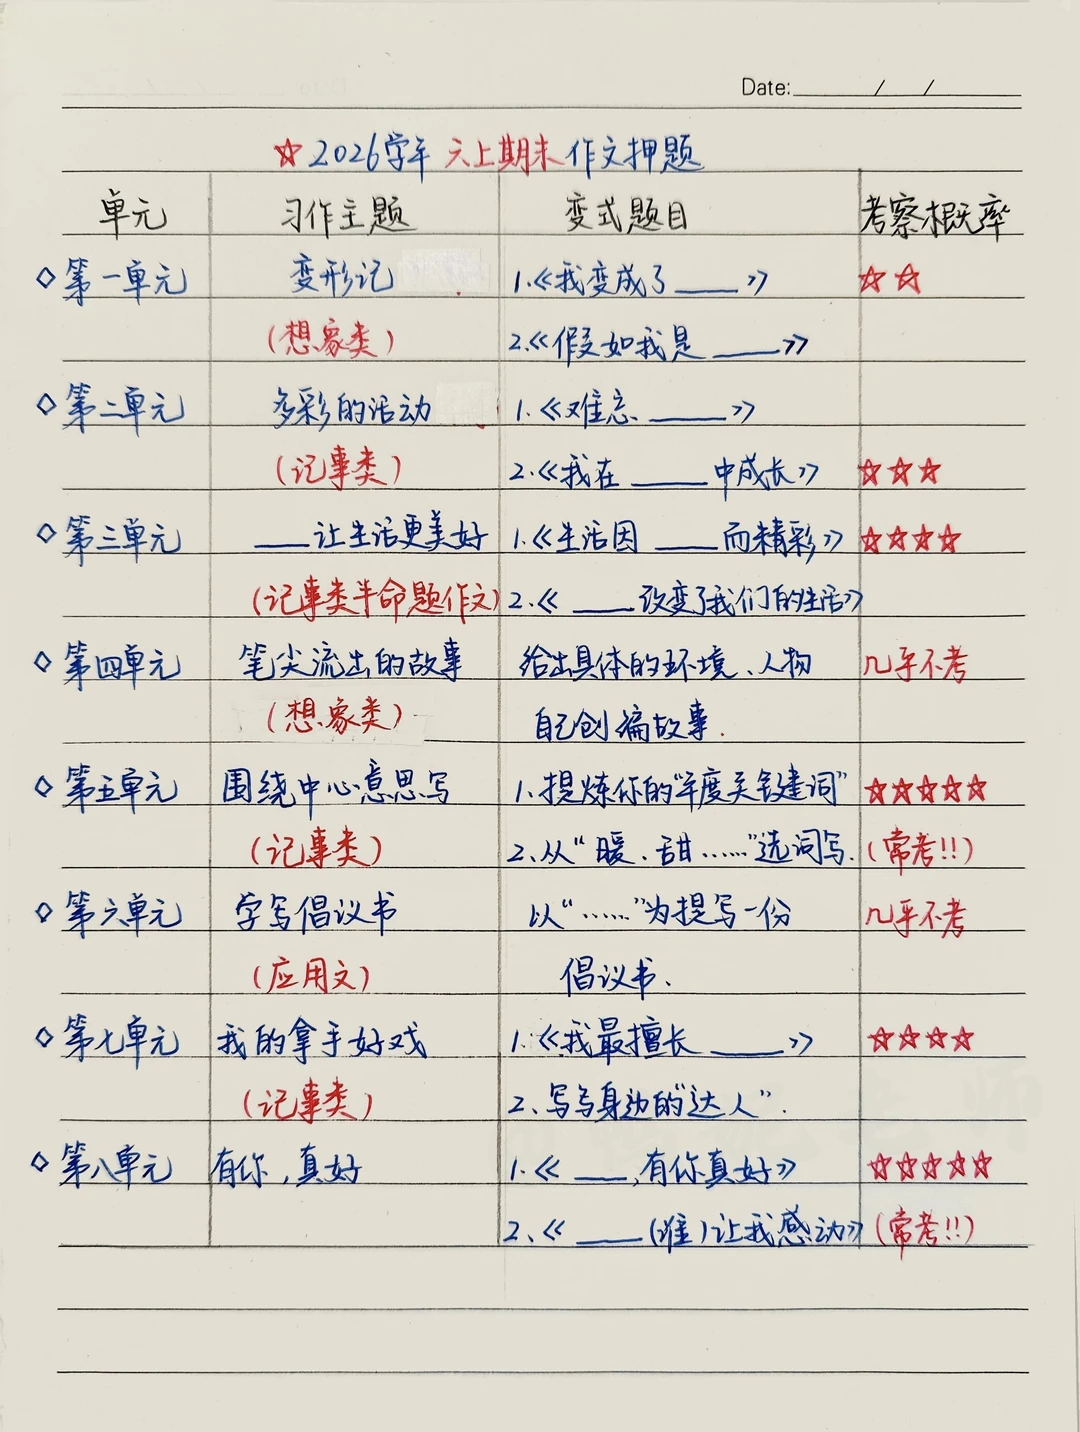 Date: / /
☆2026学年 六上期末作文押题
单元 习作主题 变式题目 考察概率
◇第一单元 变形记 1.《我变成了____》 ☆☆
(想象类) 2.《假如我是____》
◇第二单元 多彩的活动 1.《难忘____》
(记事类) 2.《我在____中成长》 ☆☆☆
◇第三单元 ____让生活更美好 1.《生活因____而精彩》 ☆☆☆☆
(记事类半命题作文) 2.《____改变了我们的生活》
◇第四单元 笔尖流出的故事 给出具体的环境、人物 几乎不考
(想象类) 自己创编故事.
◇第五单元 围绕中心意思写 1.提炼你的"年度关键词" ☆☆☆☆☆
(记事类) 2.从"暖、甜……"选词写. (常考!!)
◇第六单元 学写倡议书 以"……"为提写一份 几乎不考
(应用文) 倡议书.
◇第七单元 我的拿手好戏 1.《我最擅长____》 ☆☆☆☆
(记事类) 2、写写身边的"达人".
◇第八单元 有你,真好 1.《____,有你真好》 ☆☆☆☆☆
2、《____(谁)让我感动》 (常考!!)